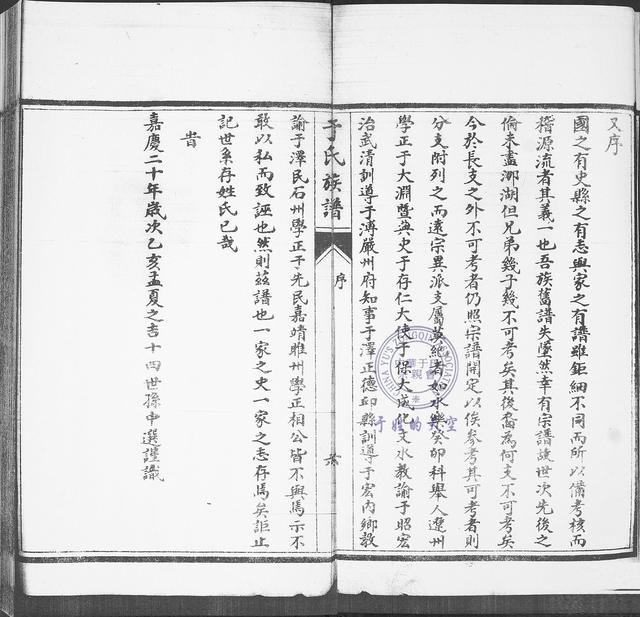 又序
國之有史縣之有志與家之有譜雖鉅細不同而所以備考核而
稽源流者其義一也吾族舊譜失墜然幸有宗譜故世次先後之
倫未盡湖但兄弟幾子幾不可考矣其後裔為何支不可考矣
今於長支之外不可考者仍照宗譜開定以俟參考其可考者則
分支附列之而遠宗異派支屬莫紀者如永樂癸卯科舉人遼州
學正于大淵暨典史于存仁大使于保大成化文水教諭于昭宏
治武清訓導于溥嚴州府知事于澤正德即縣訓導于宏內鄉教
于氏族譜
序
諭于澤民石州學正于先民嘉靖睢州學正相公皆不與焉示不
敢以私而致誣也然則茲譜也一家之史一家之志存焉矣詎止
記世系存姓氏已哉
旹
嘉慶二十年歲次乙亥孟夏之吉十四世孫中選謹識
于姓的天空